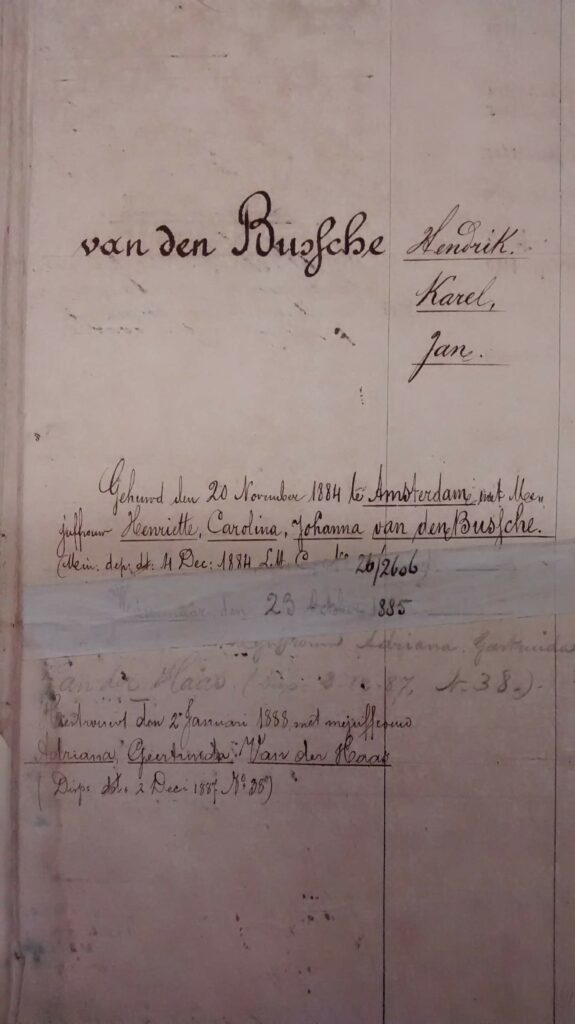 van den Bussche Hendrik.
Karel,
Jan.
Gehuwd den 20 November 1884 te Amsterdam met Me„
juffrouw Henriette, Carolina, Johanna van den Bussche.
(Min. dep. dt: 4 Dec: 1884 Litt. 26/2606)
den 23 October 1885
Mejuffrouw Adriana Geertruida
van der Haas (Disp. 2 12 87, N. 38.)
Hertrouwd den 2 Januari 1888 met mejuffrouw
Adriana, Geertruida Van der Haas
(Disp: dt. 2 Dec: 1887 No 38)